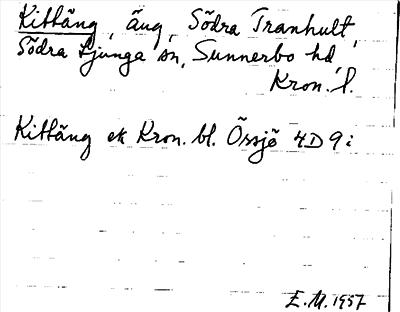 Kittäng, äng, Södra Tranhult,
Södra Ljunga sn, Sunnerbo hd,
Kron. l.
Kittäng ek Kron. bl. Örsjö 4D 9i
E.M. 1957